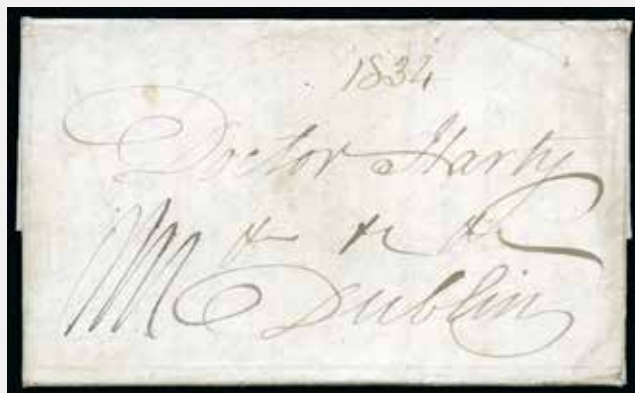 1834
Doctor Harty
&c &c &c
Dublin